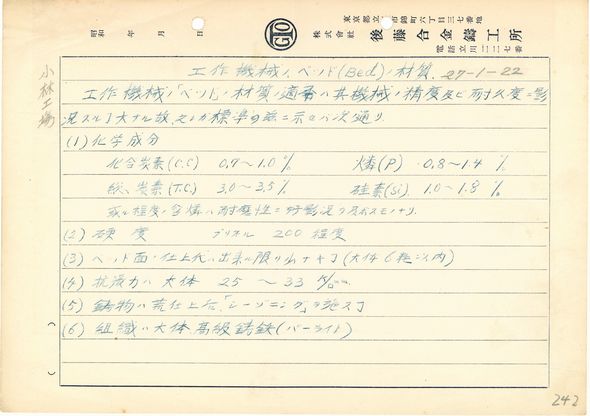 東京都立 市錦町六丁目三七番地
株式會社 後藤合金鑄工所
電話立川二二二七番
GTO
昭和 年 月 日
小林工場
工作機械ノベッド(Bed)ノ材質. 27-1-22
工作機械ノ「ベッド」ノ材質ノ適否ハ其機械ノ精度及ビ耐久度ニ影
況スルヿ大ナル故.ソノ標準 茲ニ示セバ次ノ通リ
(1) 化学成分
化合炭素(C.C) 0.7〜1.0% 燐(P) 0.8〜1.4%
総炭素(T.C) 3.0〜3.5% 硅素(Si) 1.0〜1.8%
或ル程度ノ含燐ハ耐磨性ニ好影況ヲ及ボスモノナリ.
(2) 硬度 ブリネル 200 程度
(3) ベッド面ノ仕上代ハ出来ル限リ少ナキヿ(大体6粍以内)
(4) 抗張力ハ大体 25 〜 33
(5) 鋳物ハ荒仕上后「シーゾニング」ヲ施スヿ
(6) 組織ハ大体高級鋳鉄(パーライト)
242